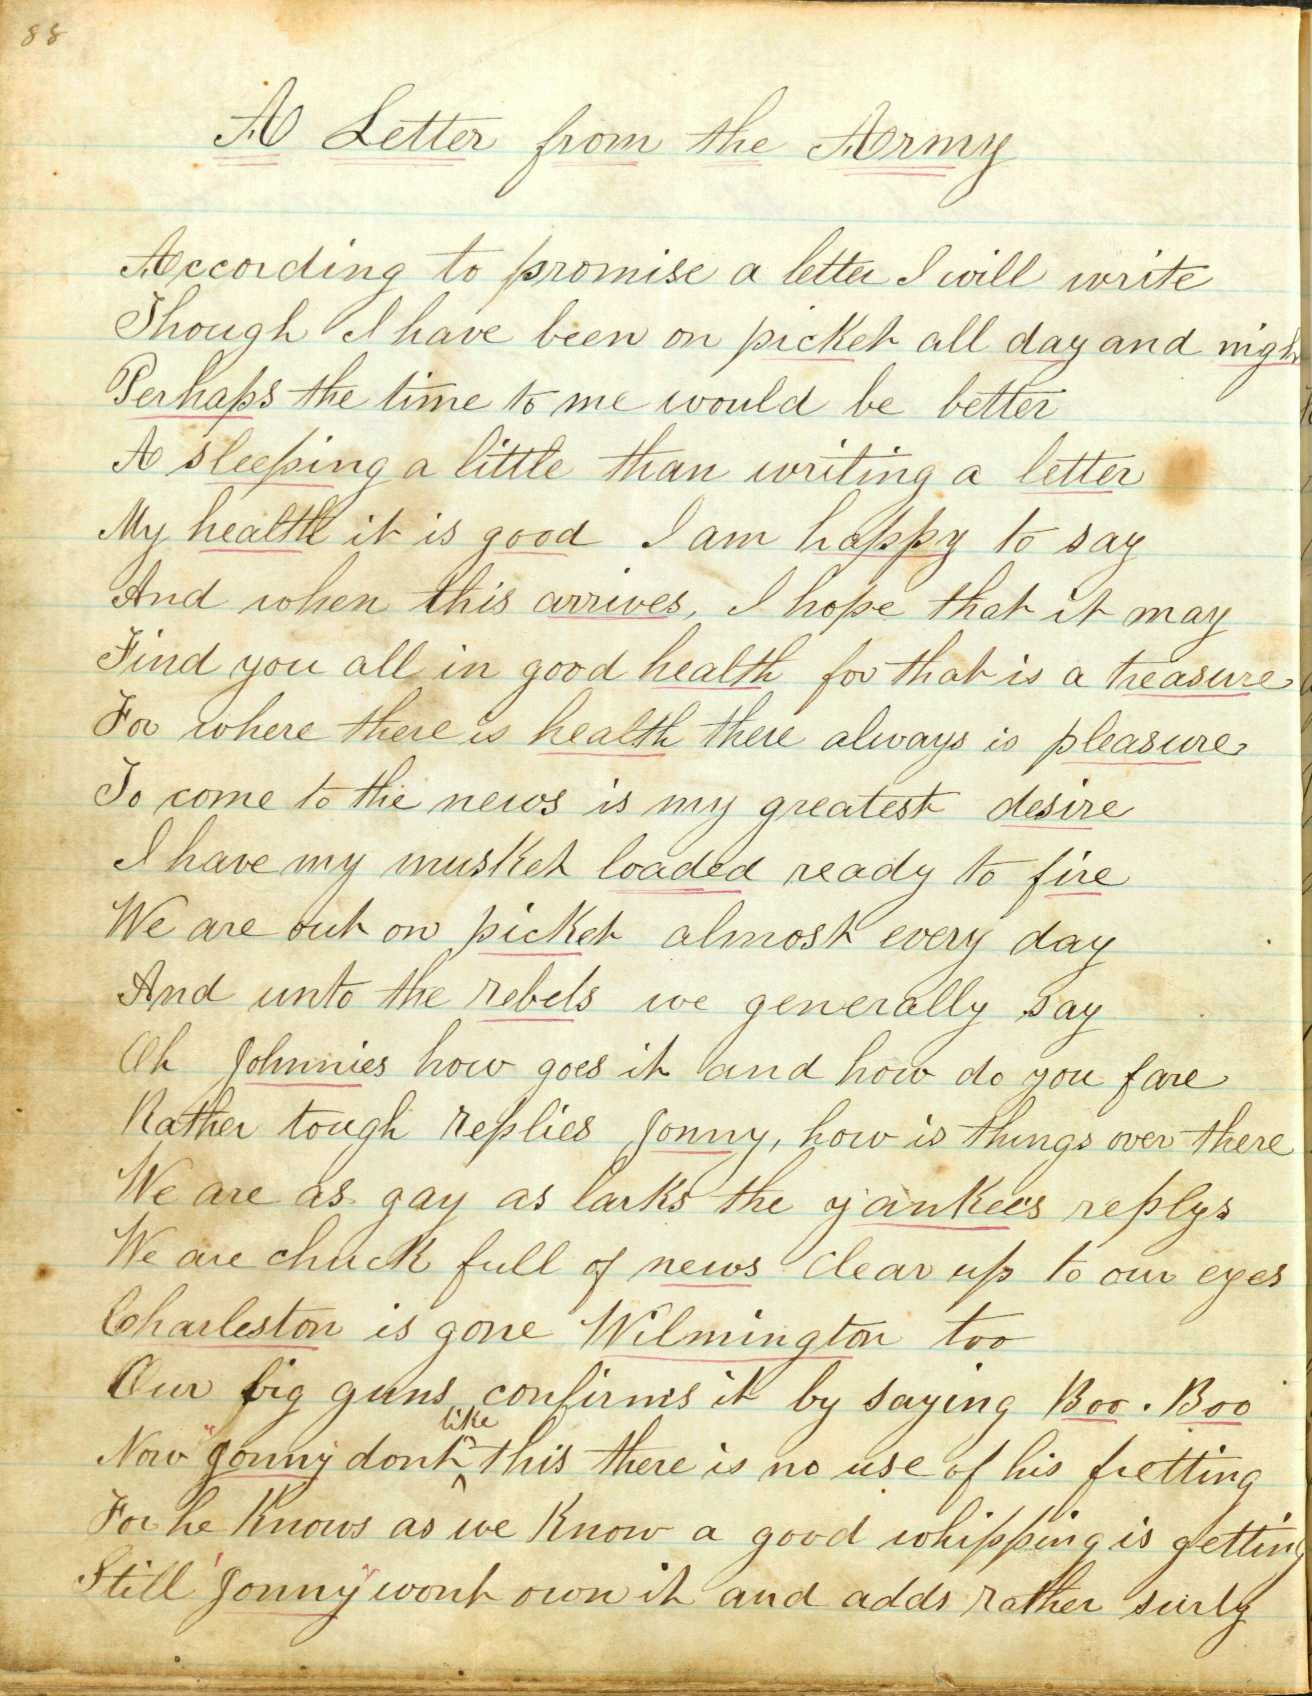 88
A Letter from the Army
According to promise a letter I will write
Though I have been on picket all day and nigh
Perhaps the time to me would be better
A sleeping a little than writing a letter
My health it is good I am happy to say
And when this arrives, I hope that it may
Find you all in good health for that is a treasure
For where there is health there always is pleasure
To come to the news is my greatest desire
I have my musket loaded ready to fire
We are out on picket almost every day
And unto the rebels we generally say
Oh Johnnies how goes it and how do you fare
Rather tough replies Jonny, how is things over there
We are as gay as larks the yankees replys
We are chuck full of news clear up to our eyes
Charleston is gone Wilmington too
Our big guns confirms it by saying Boo. Boo
Now "Jonny dont like this there is no use of his fretting
For he knows as we know a good whipping is getting
Still 'Jonny" wont own it and adds rather surly